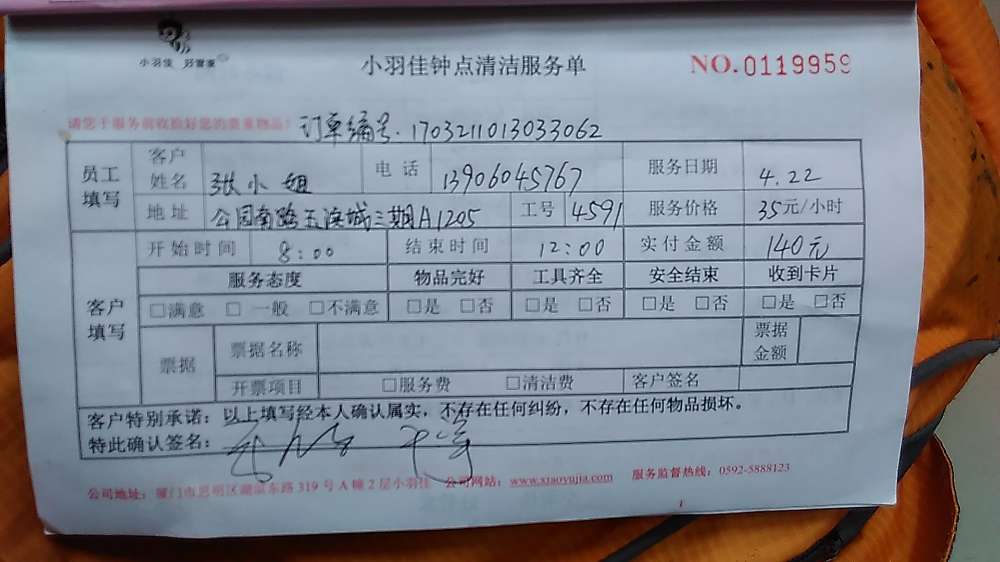 小羽佳 好管家
小羽佳钟点清洁服务单
NO.0119959
请您于服务前收拾好您的贵重物品!
订单编号.1703211013033062
员工填写 客户姓名 张小姐 电话 13906045767 服务日期 4.22
地址 公园南路五浜城三期A1205 工号 4591 服务价格 35元/小时
客户填写 开始时间 8:00 结束时间 12:00 实付金额 140元
服务态度 物品完好 工具齐全 安全结束 收到卡片
□满意 □一般 □不满意 □是 □否 □是 □否 □是 □否 □是 □否
票据 票据名称 票据金额
开票项目 □服务费 □清洁费 客户签名
客户特别承诺：以上填写经本人确认属实，不存在任何纠纷，不存在任何物品损坏。
特此确认签名：
公司地址：厦门市思明区湖滨东路319号A幢2层小羽佳 公司网站：www.xiaoyujia.com 服务监督热线：0592-5888123